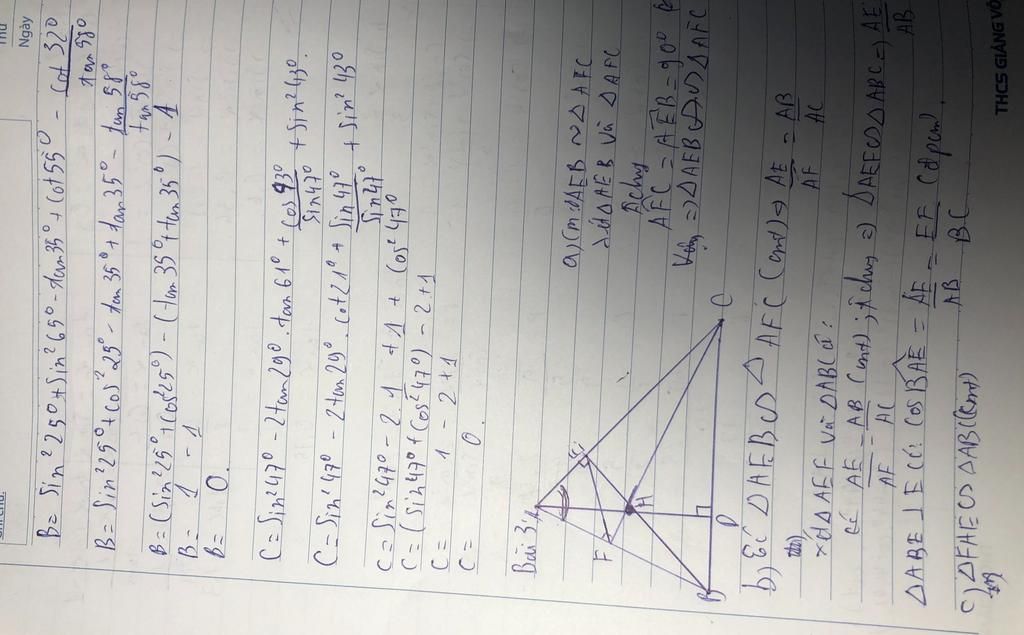 Thứ
Ngày
B = Sin²25° + Sin²65° - tan35° + cot55° - cot32°/tan58°
B = Sin²25° + cos²25° - tan35° + tan35° - tan58°/tan58°
B = (Sin²25° + cos²25°) - (tan35° + tan35°) - 1
B = 1 - 1
B = 0.
C = Sin²47° - 2tan29°.tan61° + cos43°/Sin47° + Sin²43°.
C = Sin²47° - 2tan29°.cot21° + Sin47°/Sin47 + Sin²43°
C = Sin²47° - 2.1 + 1 + cos²47°
C = (Sin47° + cos²47°) - 2+1
C = 1 - 2+1
C = 0.
Bài 3:
A
E
F
H
B
D
C
a) Cm: ΔAEB ~ ΔAFC
xd ΔAEB và ΔAFC
 chung
AFC = AEB = 90°
Vậy => ΔAEB ∽ ΔAFC
b) Có ΔAEB ∽ Δ AFC (cmt) => AE/AF = AB/AC
xd ΔAEF và ΔABC có:
Có AE/AF = AB/AC (cmt); Â chung => ΔAEF ∽ ΔABC => AE/AB
ΔABE ⊥ E có: cos BAE = AF/AB = EF/BC (đpcm)
c) ΔFHE ∽ ΔABC (cmt)
THCS GIẢNG VÕ